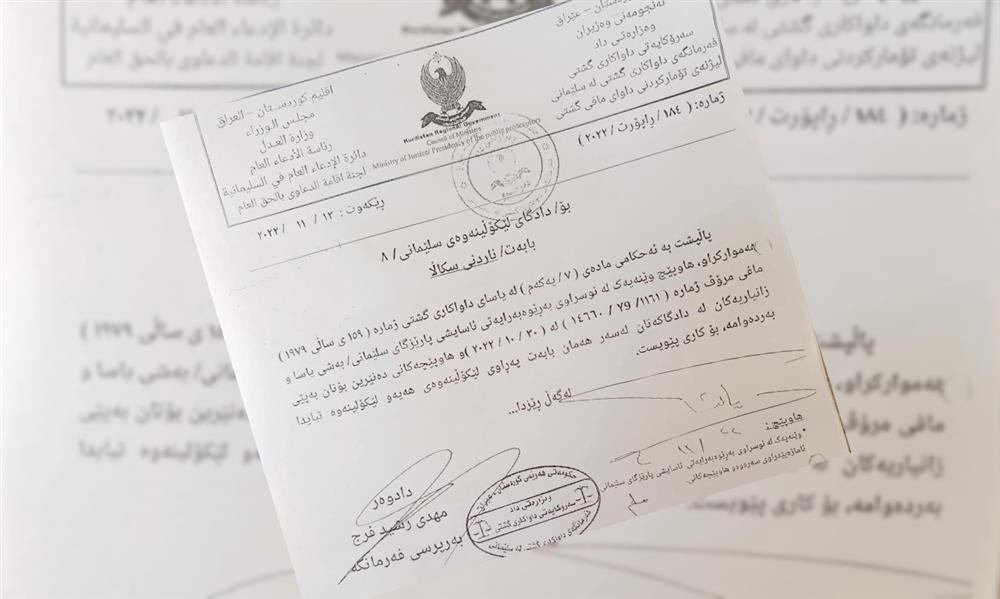 هەرێمی کوردستان – عێراق
ئەنجومەنی وەزیران
وەزارەتی داد
سەرۆکایەتی داواکاری گشتی
فەرمانگەی داواکاری گشتی لە سلێمانی
لیژنەی تۆمارکردنی داوای مافی گشتی
اقليم كوردستان – العراق
مجلس الوزراء
وزارة العدل
رئاسة الادعاء العام
دائرة الإدعاء العام في السليمانية
لجنة اقامة الدعاوي بالحق العام
Kurdistan Regional Government
Council of Ministers
Ministry of Justical Presidency of the public prosecutors
ژمارە: ( ١٨٤ / ڕاپۆرت / ٢٠٢٢ )
ڕێکەوت : ١٣ / ١١ / ٢٠٢٢
بۆ/ دادگای لێکۆڵینەوەی سلێمانی / ٨
بابەت/ ناردنی سکاڵا
پاڵپشت بە ئەحکامی مادەی ( ٧ / یەکەم ) لە یاسای داواکاری گشتی ژمارە ( ١٥٩ ی ساڵی ١٩٧٩ )
هەموارکراو، هاوپێچ وێنەیەک لە نوسراوی بەڕێوەبەرایەتی ئاسایشی پارێزگای سلێمانی/ بەشی یاسا و
مافی مرۆڤ ژمارە ( ١١٦١/ ٧٩ / ١٤٦٦٠ ) لە ( ٣٠ / ١٠ / ٢٠٢٢ )و هاوپێچەکانی دەنێرین بۆتان بەپێی
زانیاریەکان لە دادگاکەتان لەسەر هەمان بابەت پەراوی لێکۆڵینەوەی هەیەو لێکۆڵینەوە تیایدا
بەردەوامە، بۆ کاری پێویست.
لەگەڵ ڕێزدا...
هاوپێچ:
• وێنەیەک لە نوسراوی بەڕێوەبەرایەتی ئاسایشی پارێزگای سلێمانی
ئاماژەپێدراوی سەرەوەو هاوپێچەکانی.
دادوەر
مهدی رشید فرج
بەرپرسی فەرمانگە
حکومەتی هەرێمی کوردستان - عێراق
وەزارەتی داد
سەرۆکایەتی داواکاری گشتی
فەرمانگەی داواکاری گشتی لە سلێمانی